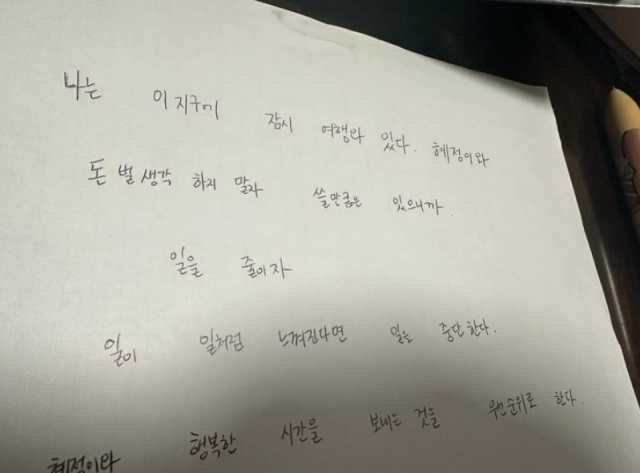 나는 이 지구에 잠시 여행와 있다. 혜정이와
돈 벌 생각 하지 말자 쓸만큼은 있으니까
일을 줄이자
일이 일처럼 느껴진다면 일을 중단한다.
혜정이와 행복한 시간을 보내는 것을 우선순위로 한다.